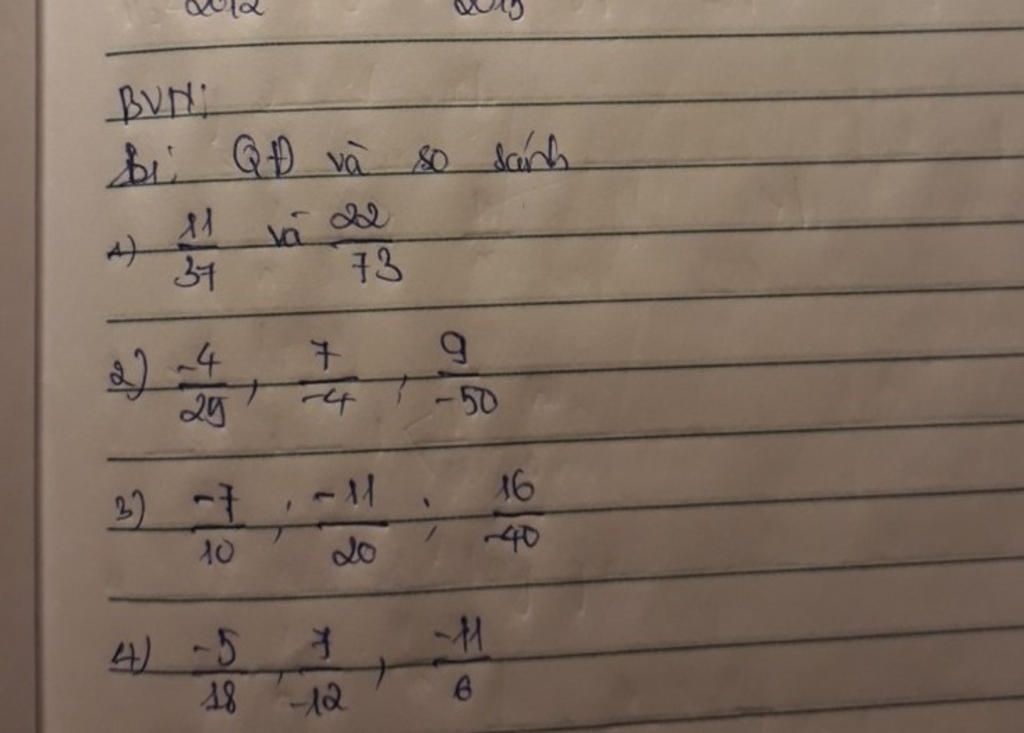 2012 2013
BVN:
B1: QĐ và so sánh
1) 11/37 và 22/73
2) -4/25, 7/-4, 9/-50
3) -7/10; -11/20; 16/-40
4) -5/18, 7/-12, -11/6